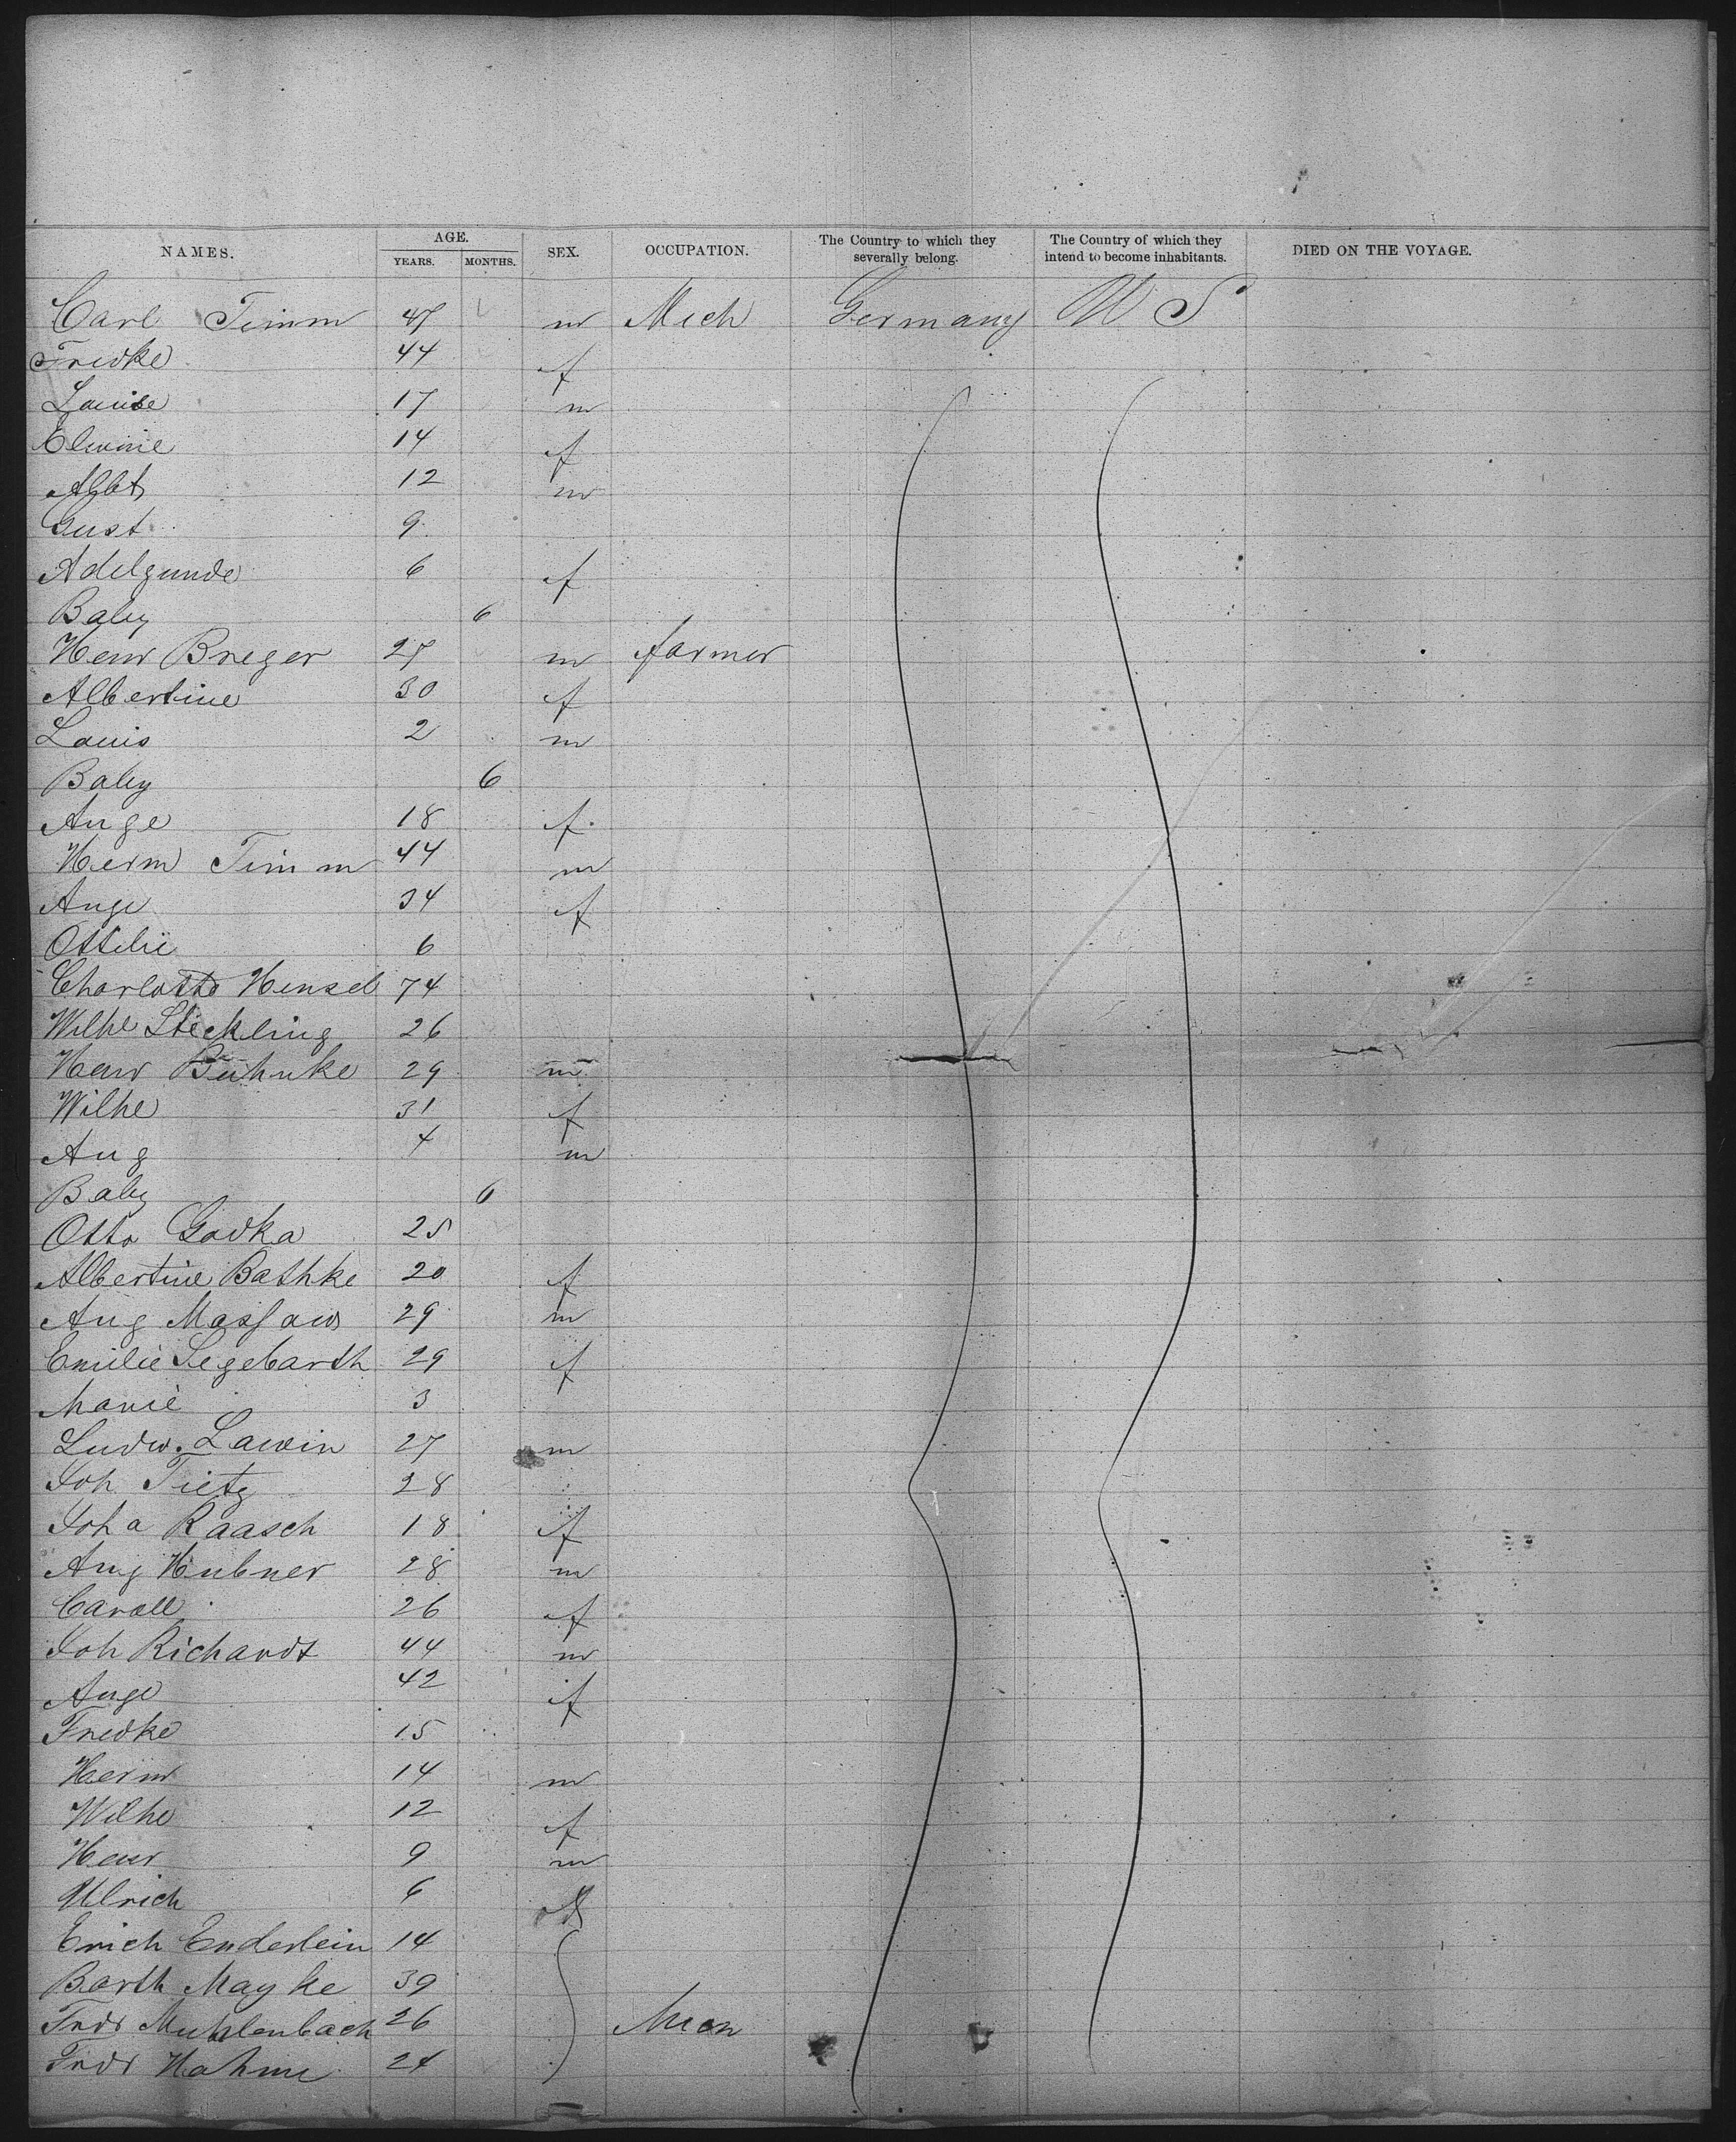 NAMES. AGE. YEARS. MONTHS. SEX. OCCUPATION. The Country to which they severally belong. The Country of which they intend to become inhabitants. DIED ON THE VOYAGE.
Carl Timm 47 m Mech Germany U S
Fredke 44 f
Louise 17 m
Elwine 14 f
Albt 12 m
Gust 9
Adelgunde 6 f
Baby 6
Henr Breger 27 m farmer
Albertine 30 f
Louis 2 m
Baby 6
Auge 18 f
Herm Timm 44 m
Auge 34 f
Ottilie 6
Charlotte Hensel 74
Wilhe Steckling 26
Henr Buhnke 29 m
Wilhe 31 f
Aug 4 m
Baby 6
Otto Godka 25
Albertine Bathke 20 f
Aug Massow 29 m
Emilie Segebarth 29 f
Marie 3
Ludw. Lawin 27 m
Joh Tietz 28
Joha Raasch 18 f
Aug Hubner 28 m
Caroll 26 f
Joh Richardt 44 m
Auge 42 f
Fredke 15
Herm 14 m
Wilhe 12 f
Henr 9 m
Ulrich 6
Erich Enderlein 14
Barth Mayke 39
Frdr Muhlenbach 26
Frdr Hahme 24